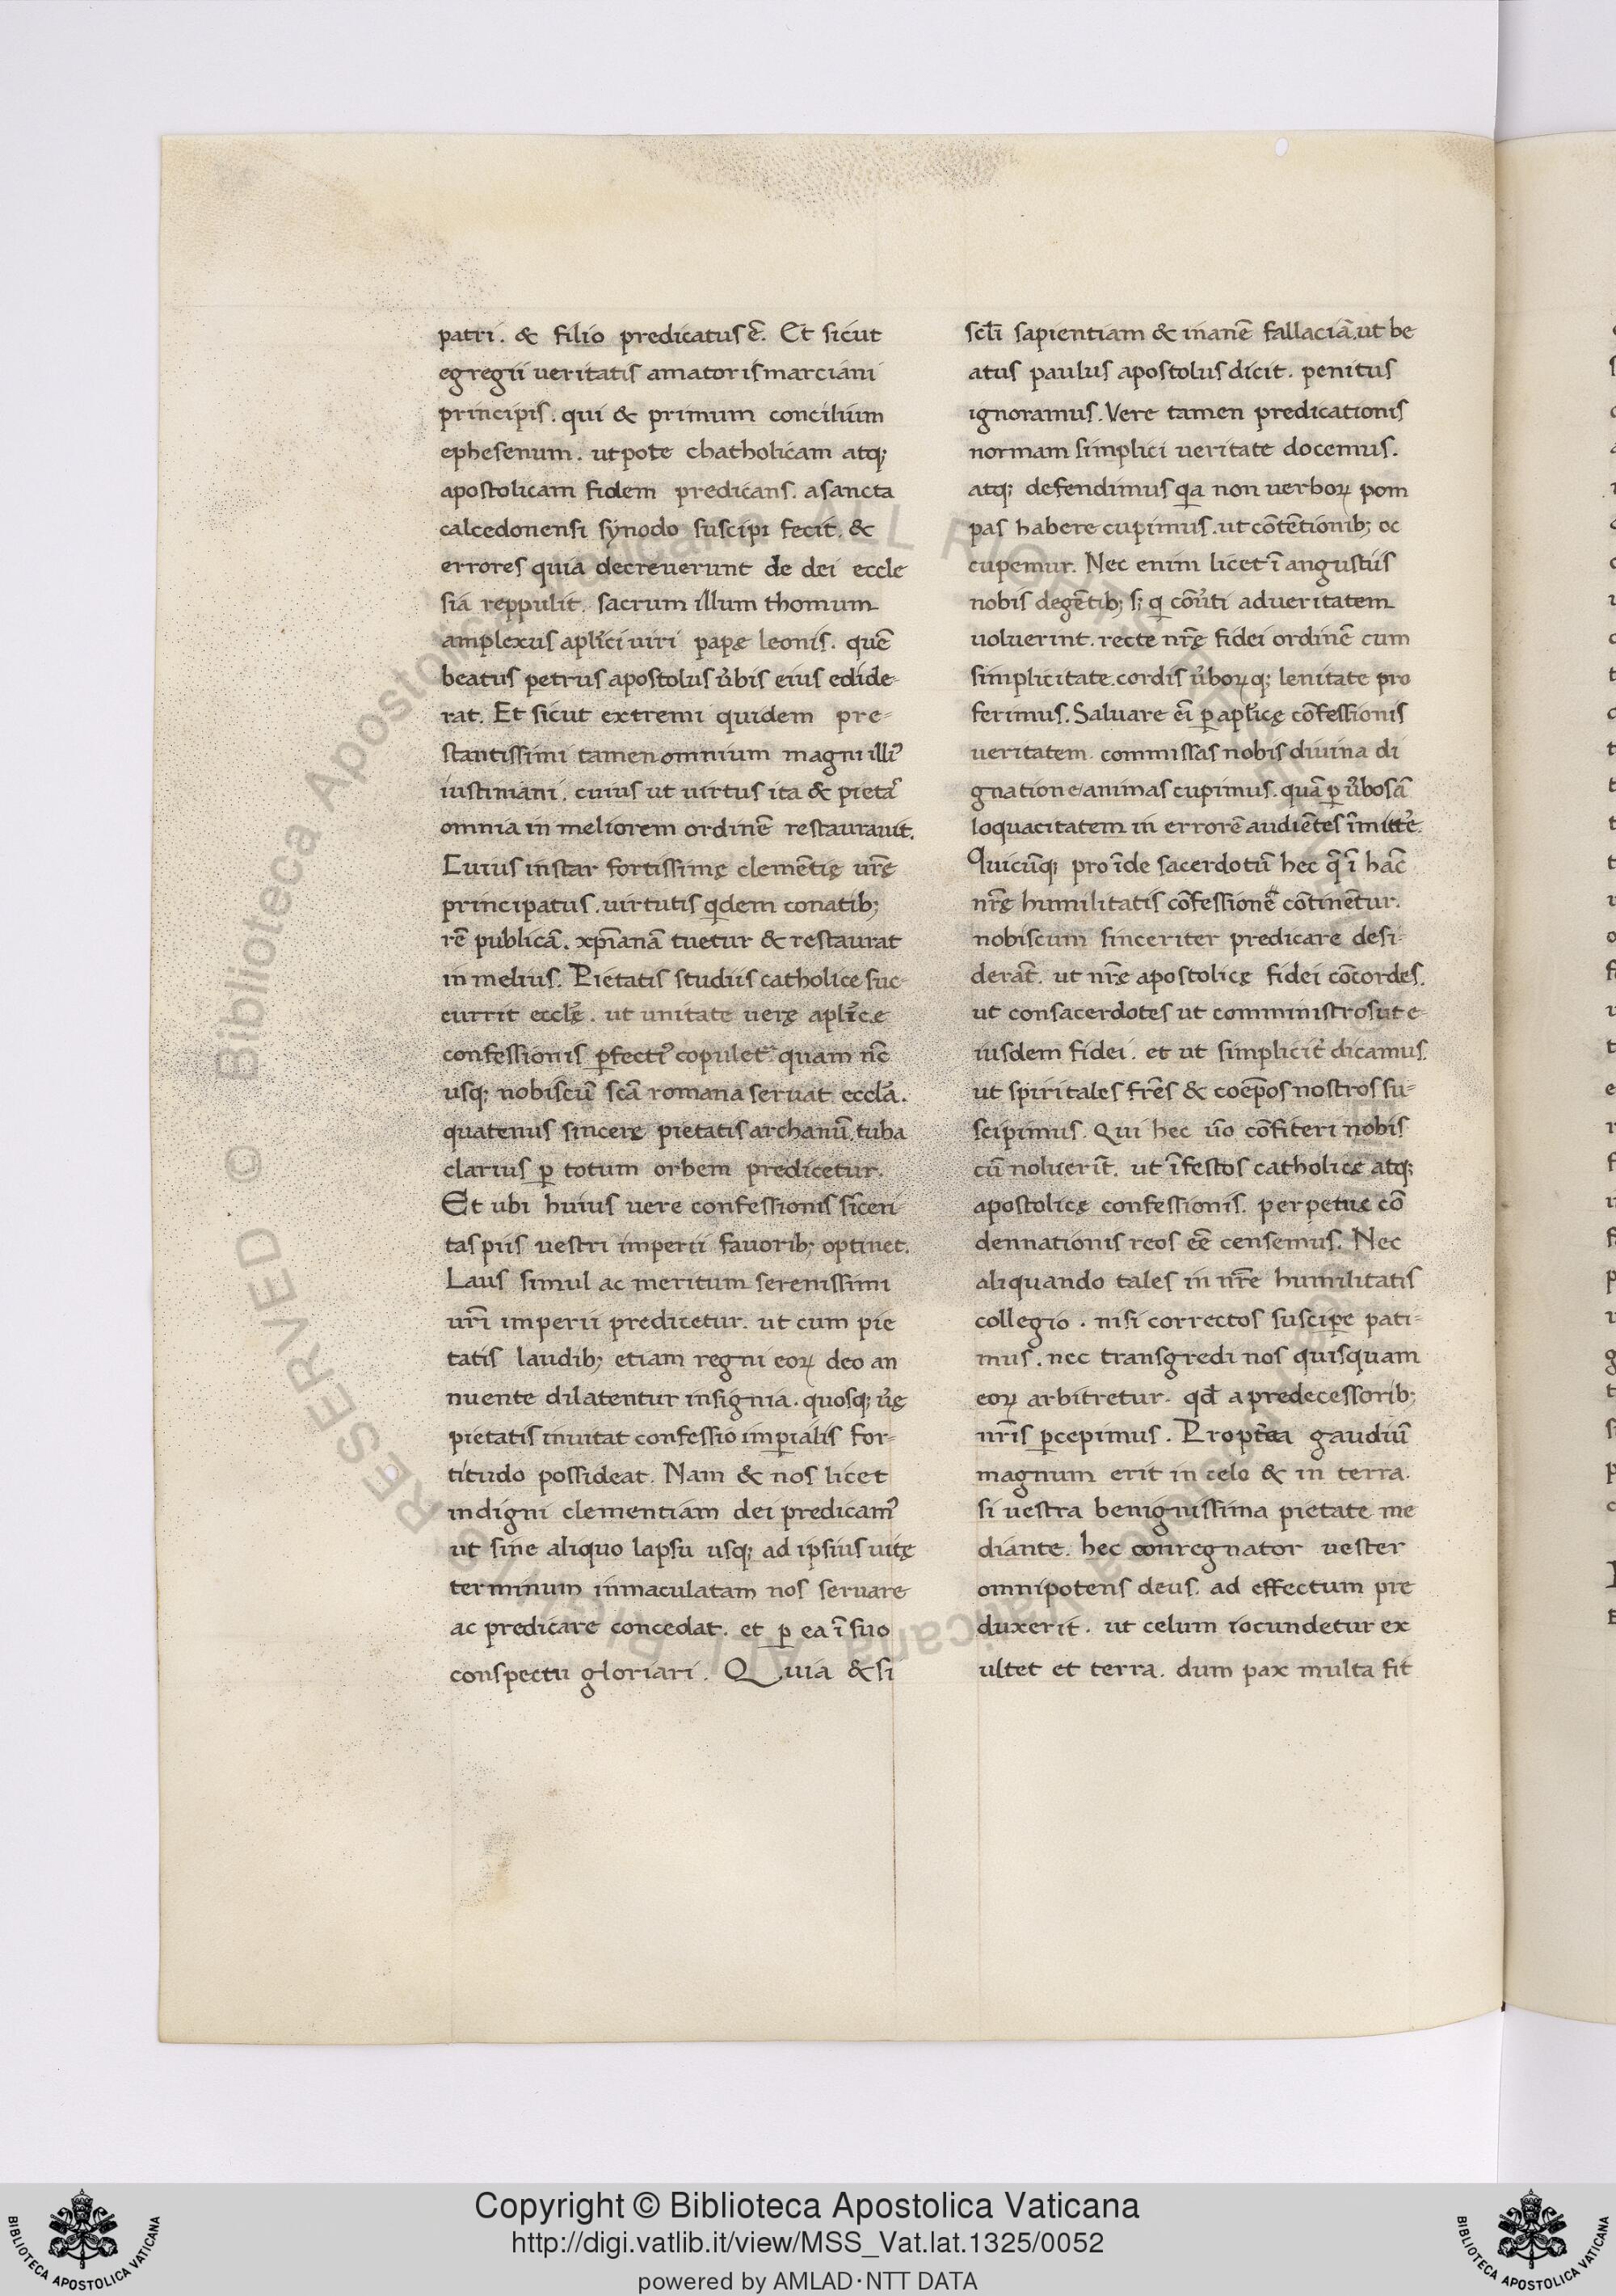 patri. & filio predicatus ē. Et sicut
egregii veritatis amatoris marciani
principis. qui & primum concilium
ephesenum. ut pote chatholicam atq;
apostolicam fidem predicans. a sancta
calcedonensi synodo suscipi fecit. &
errores quia decreverunt de dei eccle
sia reppulit. sacrum illum thomum
amplexus apl̄ici uiri papę leonis. quē
beatus petrus apostolus u̓bis eius edide-
rat. Et sicut extremi quidem pre-
stantissimi tamen omnium magni illiꝰ
iustiniani. cuius ut uirtus ita & pietaꝰ
omnia in meliorem ordinē restaurauit.
Cuius instar fortissimę clemētię ur̄ę
principatus. uirtutis qdem conatib;
rē publicā. xp̄ianā tuetur & restaurat
in melius. Pietatis studiis catholice suc-
currit eccl̄ę. ut unitate uerę apl̄icę
confessionis ꝑfectiꝰ copuletꝰ quam nc̄
usq; nobiscū sc̄a romana seruat eccl̄a.
quatenus sincerę pietatis archanū. tuba
clarius ꝑ totum orbem predicetur.
Et ubi huius uere confessionis sīceri
tas piis uestri imperii fauorib; optinet.
Laus simul ac meritum serenissimi
ur̄i imperii predicetur. ut cum pie
tatis laudib; etiam regni eoꝝ deo an
nuente dilatentur insignia. quosq; u̓ę
pietatis inuitat confessio imꝑialis for-
titudo possideat. Nam & nos licet
indigni clementiam dei predicamꝰ
ut sine aliquo lapsu usq; ad ipsius uitę
terminum inmaculatam nos seruare
ac predicare concedat. et ꝑ ea ī suo
conspectu gloriari. Quia & si
scl̄i sapientiam & inanē fallaciā. ut be
atus paulus apostolus dicit. penitus
ignoramus. Vere tamen predicationis
normam simplici ueritate docemus.
atq; defendimus qa non uerboꝝ pom
pas habere cupimus. ut cōtētionib; oc
cupemur. Nec enim licet ī angustiis
nobis degētib; s; q cōu̓ti ad ueritatem
uoluerint. recte nr̄ę fidei ordinē cum
simplicitate cordis u̓boꝝq; lenitate pro
ferimus. Saluare eī ꝑ apl̄icę cōfessionis
ueritatem commissas nobis diuina di
gnatione animas cupimus. quā ꝑ u̓bosā
loquacitatem in errorē audiētes īmitte̓.
Quicūq; pro īde sacerdotū hec q̄ ī hac̄
nr̄ę humilitatis cōfessionē cōtinētur.
nobiscum sinceriter predicare desi-
derāt. ut nr̄ę apostolicę fidei cōcordes.
ut consacerdotes ut comministros ut e-
iusdem fidei. et ut simplicit̓ dicamus.
ut spiritales fr̄es & coep̄os nostros su-
scipimus. Qui hec u̅o cōfiteri nobis
cū noluerīt. ut īfestos catholicę atq;
apostolicę confessionis. perpetuę cō
dennationis reos eē censemus. Nec
aliquando tales in nr̄e humilitatis
collegio. nisi correctos susciꝑe pati-
mus. nec transgredi nos quisquam
eoꝝ arbitretur. qd̄ a predecessorib;
nr̄is ꝑcepimus. Propt̓ea gaudiū
magnum erit in celo & in terra.
si uestra benignissima pietate me
diante. hec conregnator uester
omnipotens deus. ad effectum pre
duxerit. ut celum iocundetur ex
ultet et terra. dum pax multa fit
Copyright © Biblioteca Apostolica Vaticana
http://digi.vatlib.it/view/MSS_Vat.lat.1325/0052
powered by AMLAD·NTT DATA